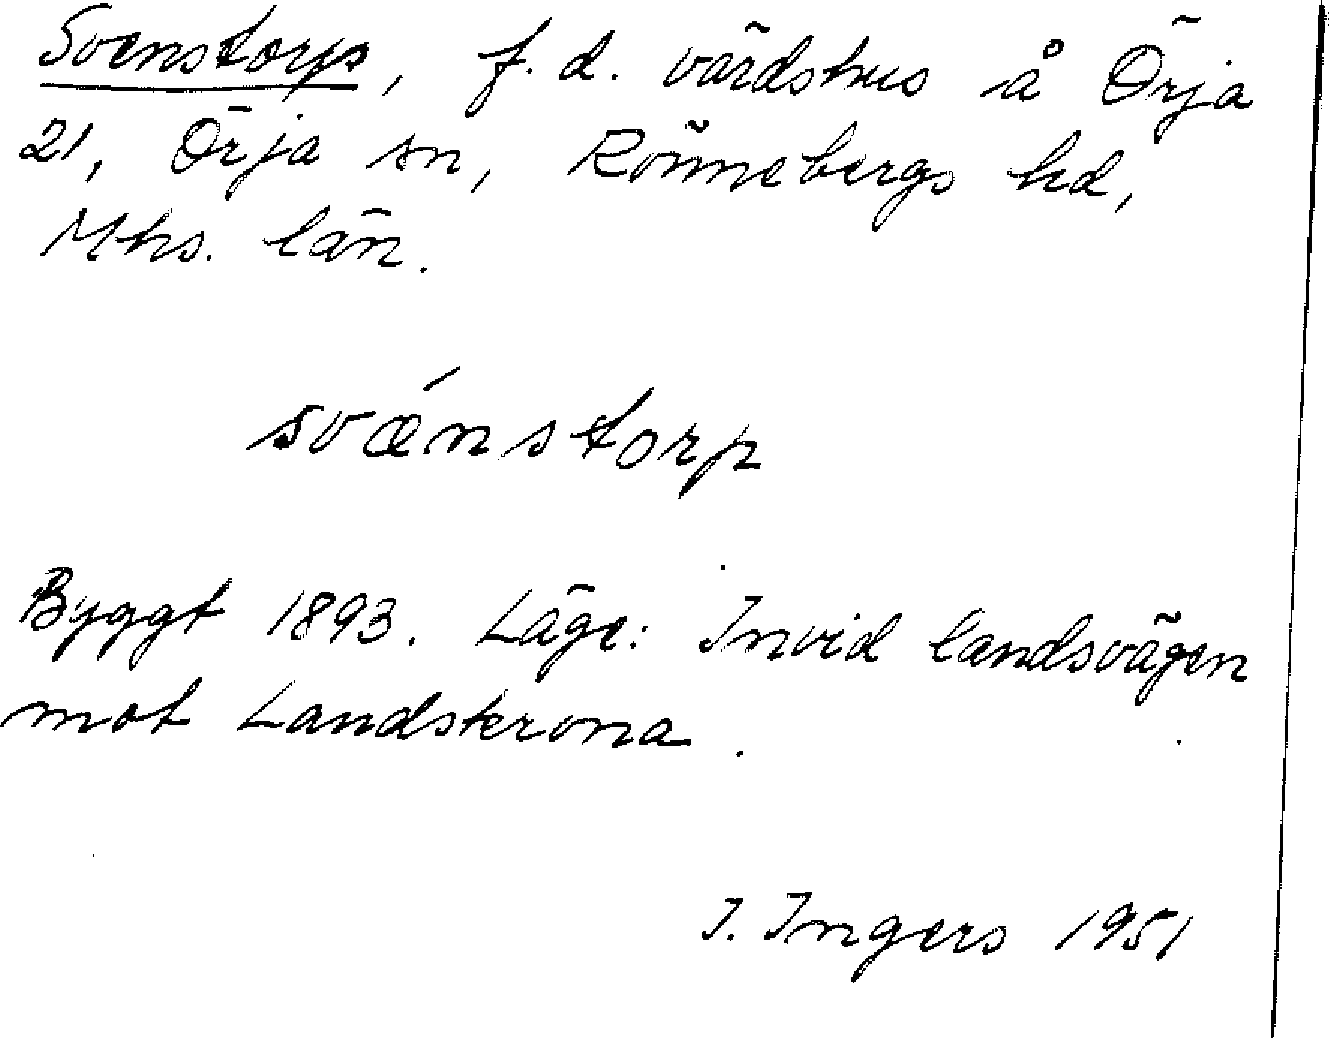 Svenstorps, f.d. värdshus å Örja
21, Örja sn, Rönnebergs hd,
Mhs. län.
svænstorp
Byggt 1893. Läge: Invid landsvägen
mot Landskrona.
I. Ingers 1951